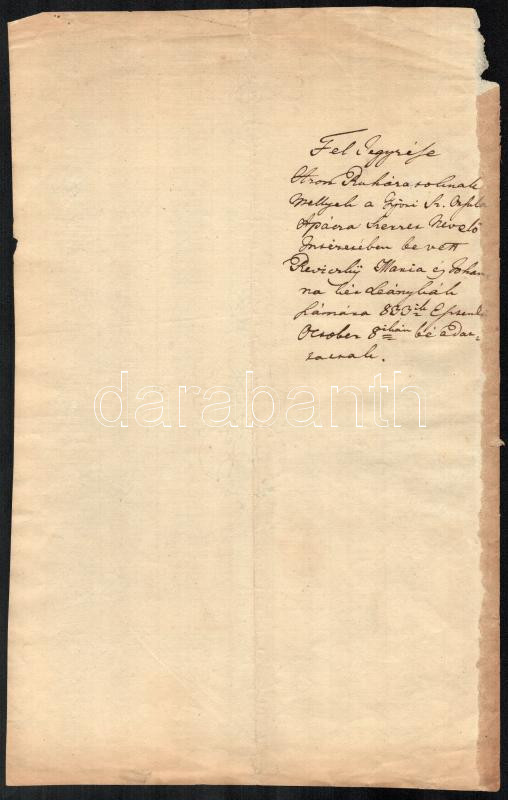 Fel Jegyzése
Azon Ruházatoknak
Mellyek a Győri Sz. Orsola
Apácza Szerzet Nevelő
Intézetében be vett
Reviczky Maria és Johan
na két Leánykák
számára 833ik Eszend:
October 8ikán bé adat-
tattak.
darabanth